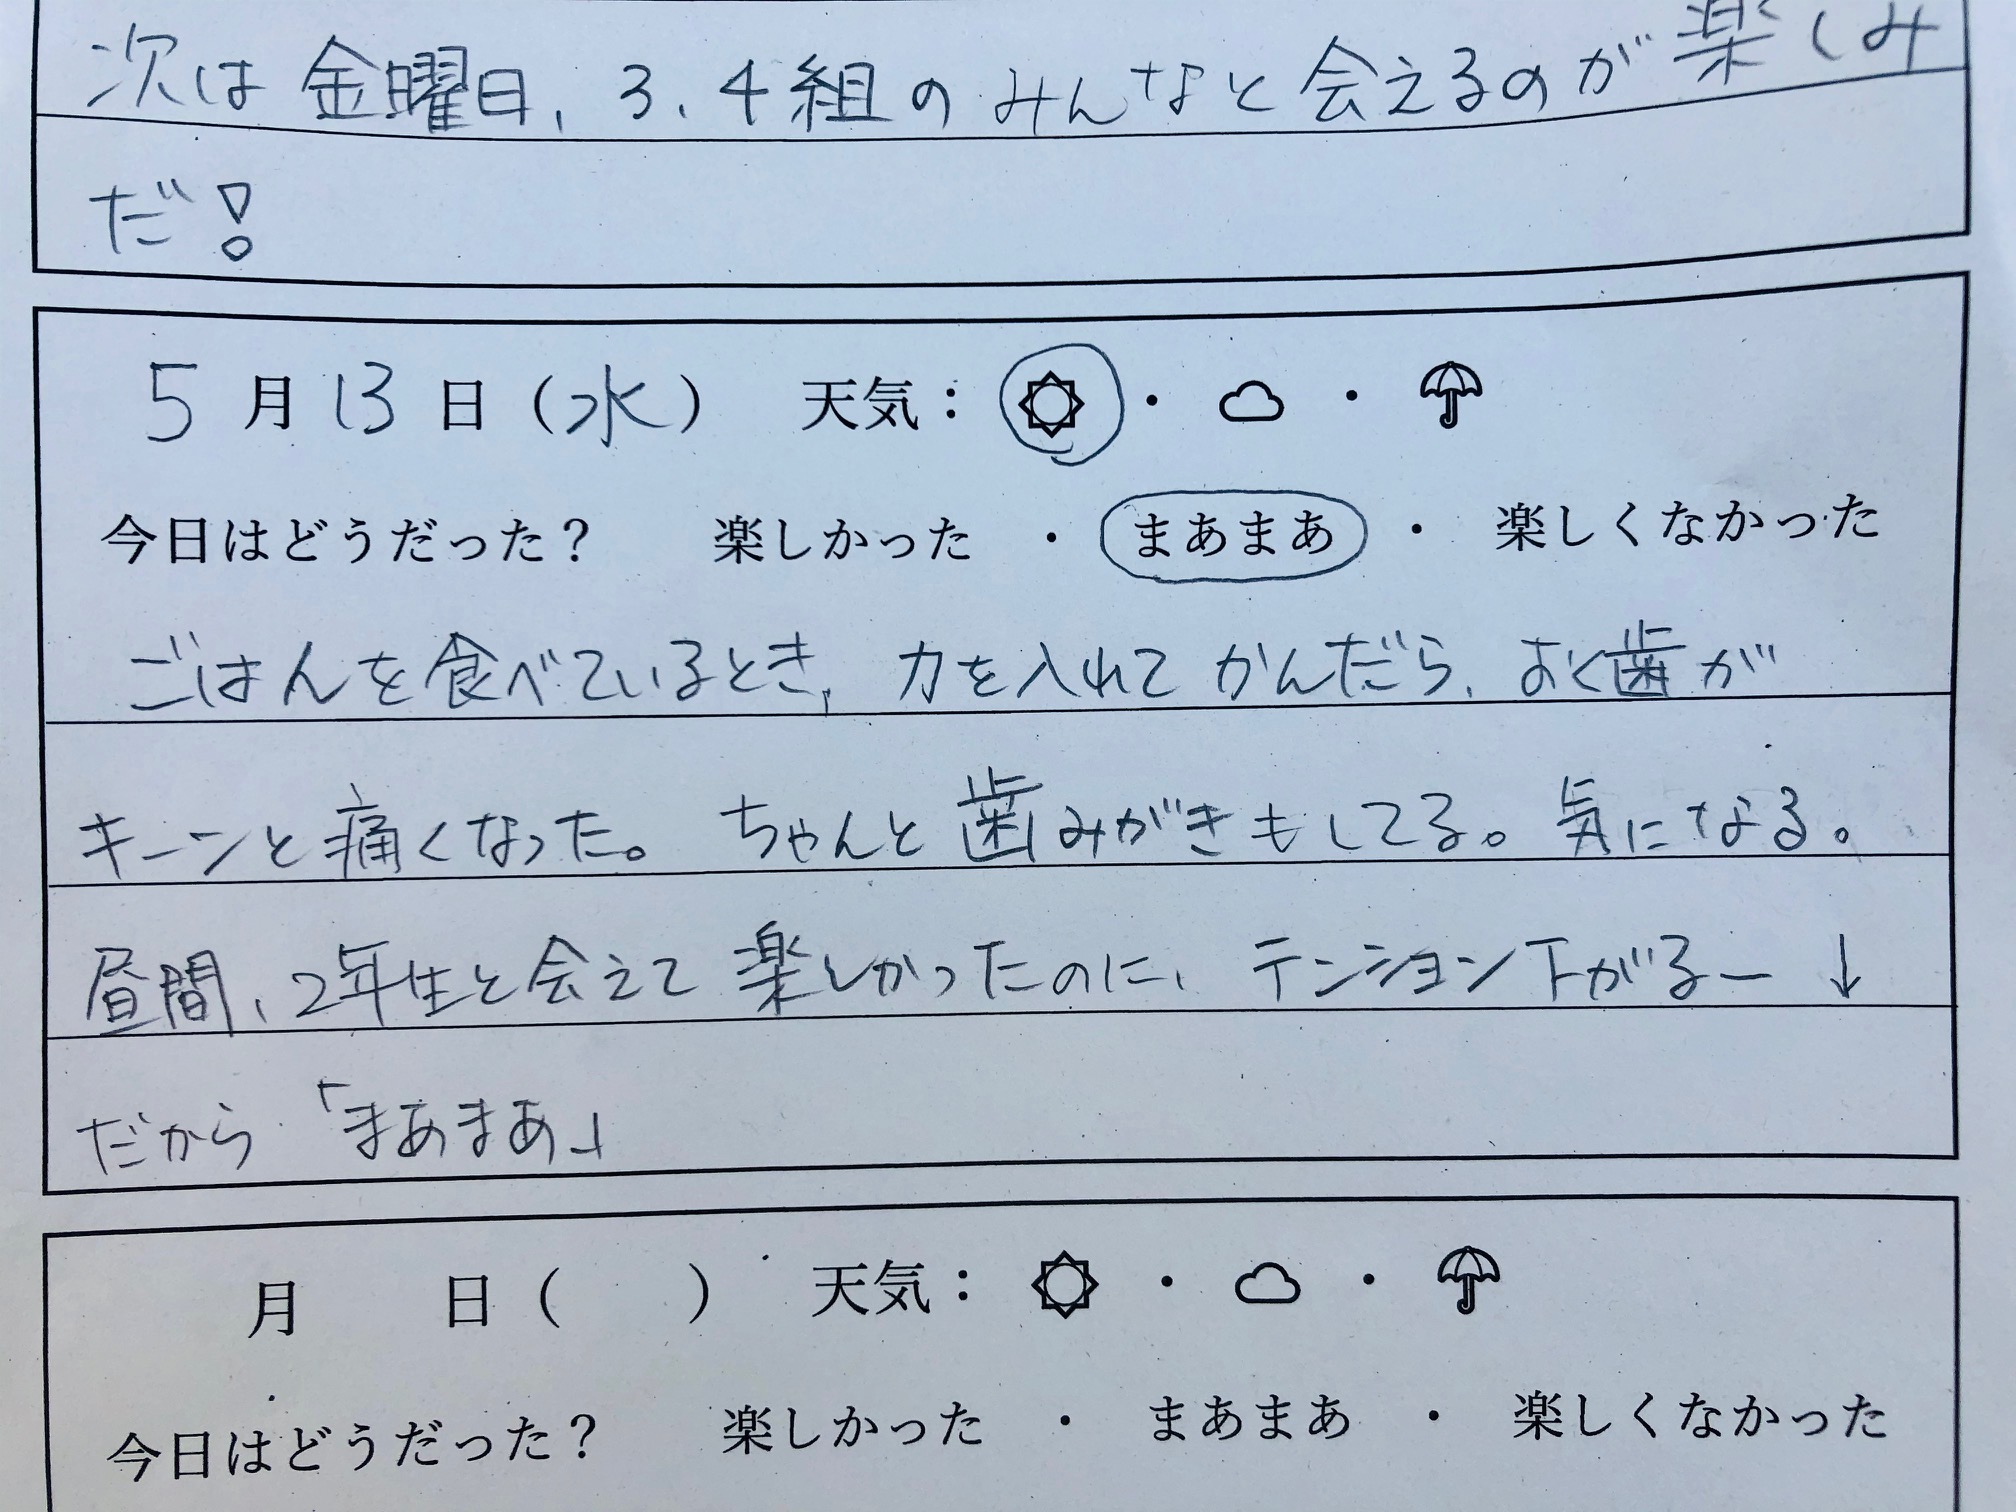 次は金曜日、3、4組のみんなと会えるのが楽しみ
だ!
5月13日(水) 天気:☼・☁・☂
今日はどうだった? 楽しかった ・ まあまあ ・ 楽しくなかった
ごはんを食べているとき、力を入れてかんだら、おく歯が
キーンと痛くなった。ちゃんと歯みがきもしてる。気になる。
昼間、2年生と会えて楽しかったのに、テンション下がるー↓
だから「まあまあ」
月 日( ) 天気:☼・☁・☂
今日はどうだった? 楽しかった ・ まあまあ ・ 楽しくなかった